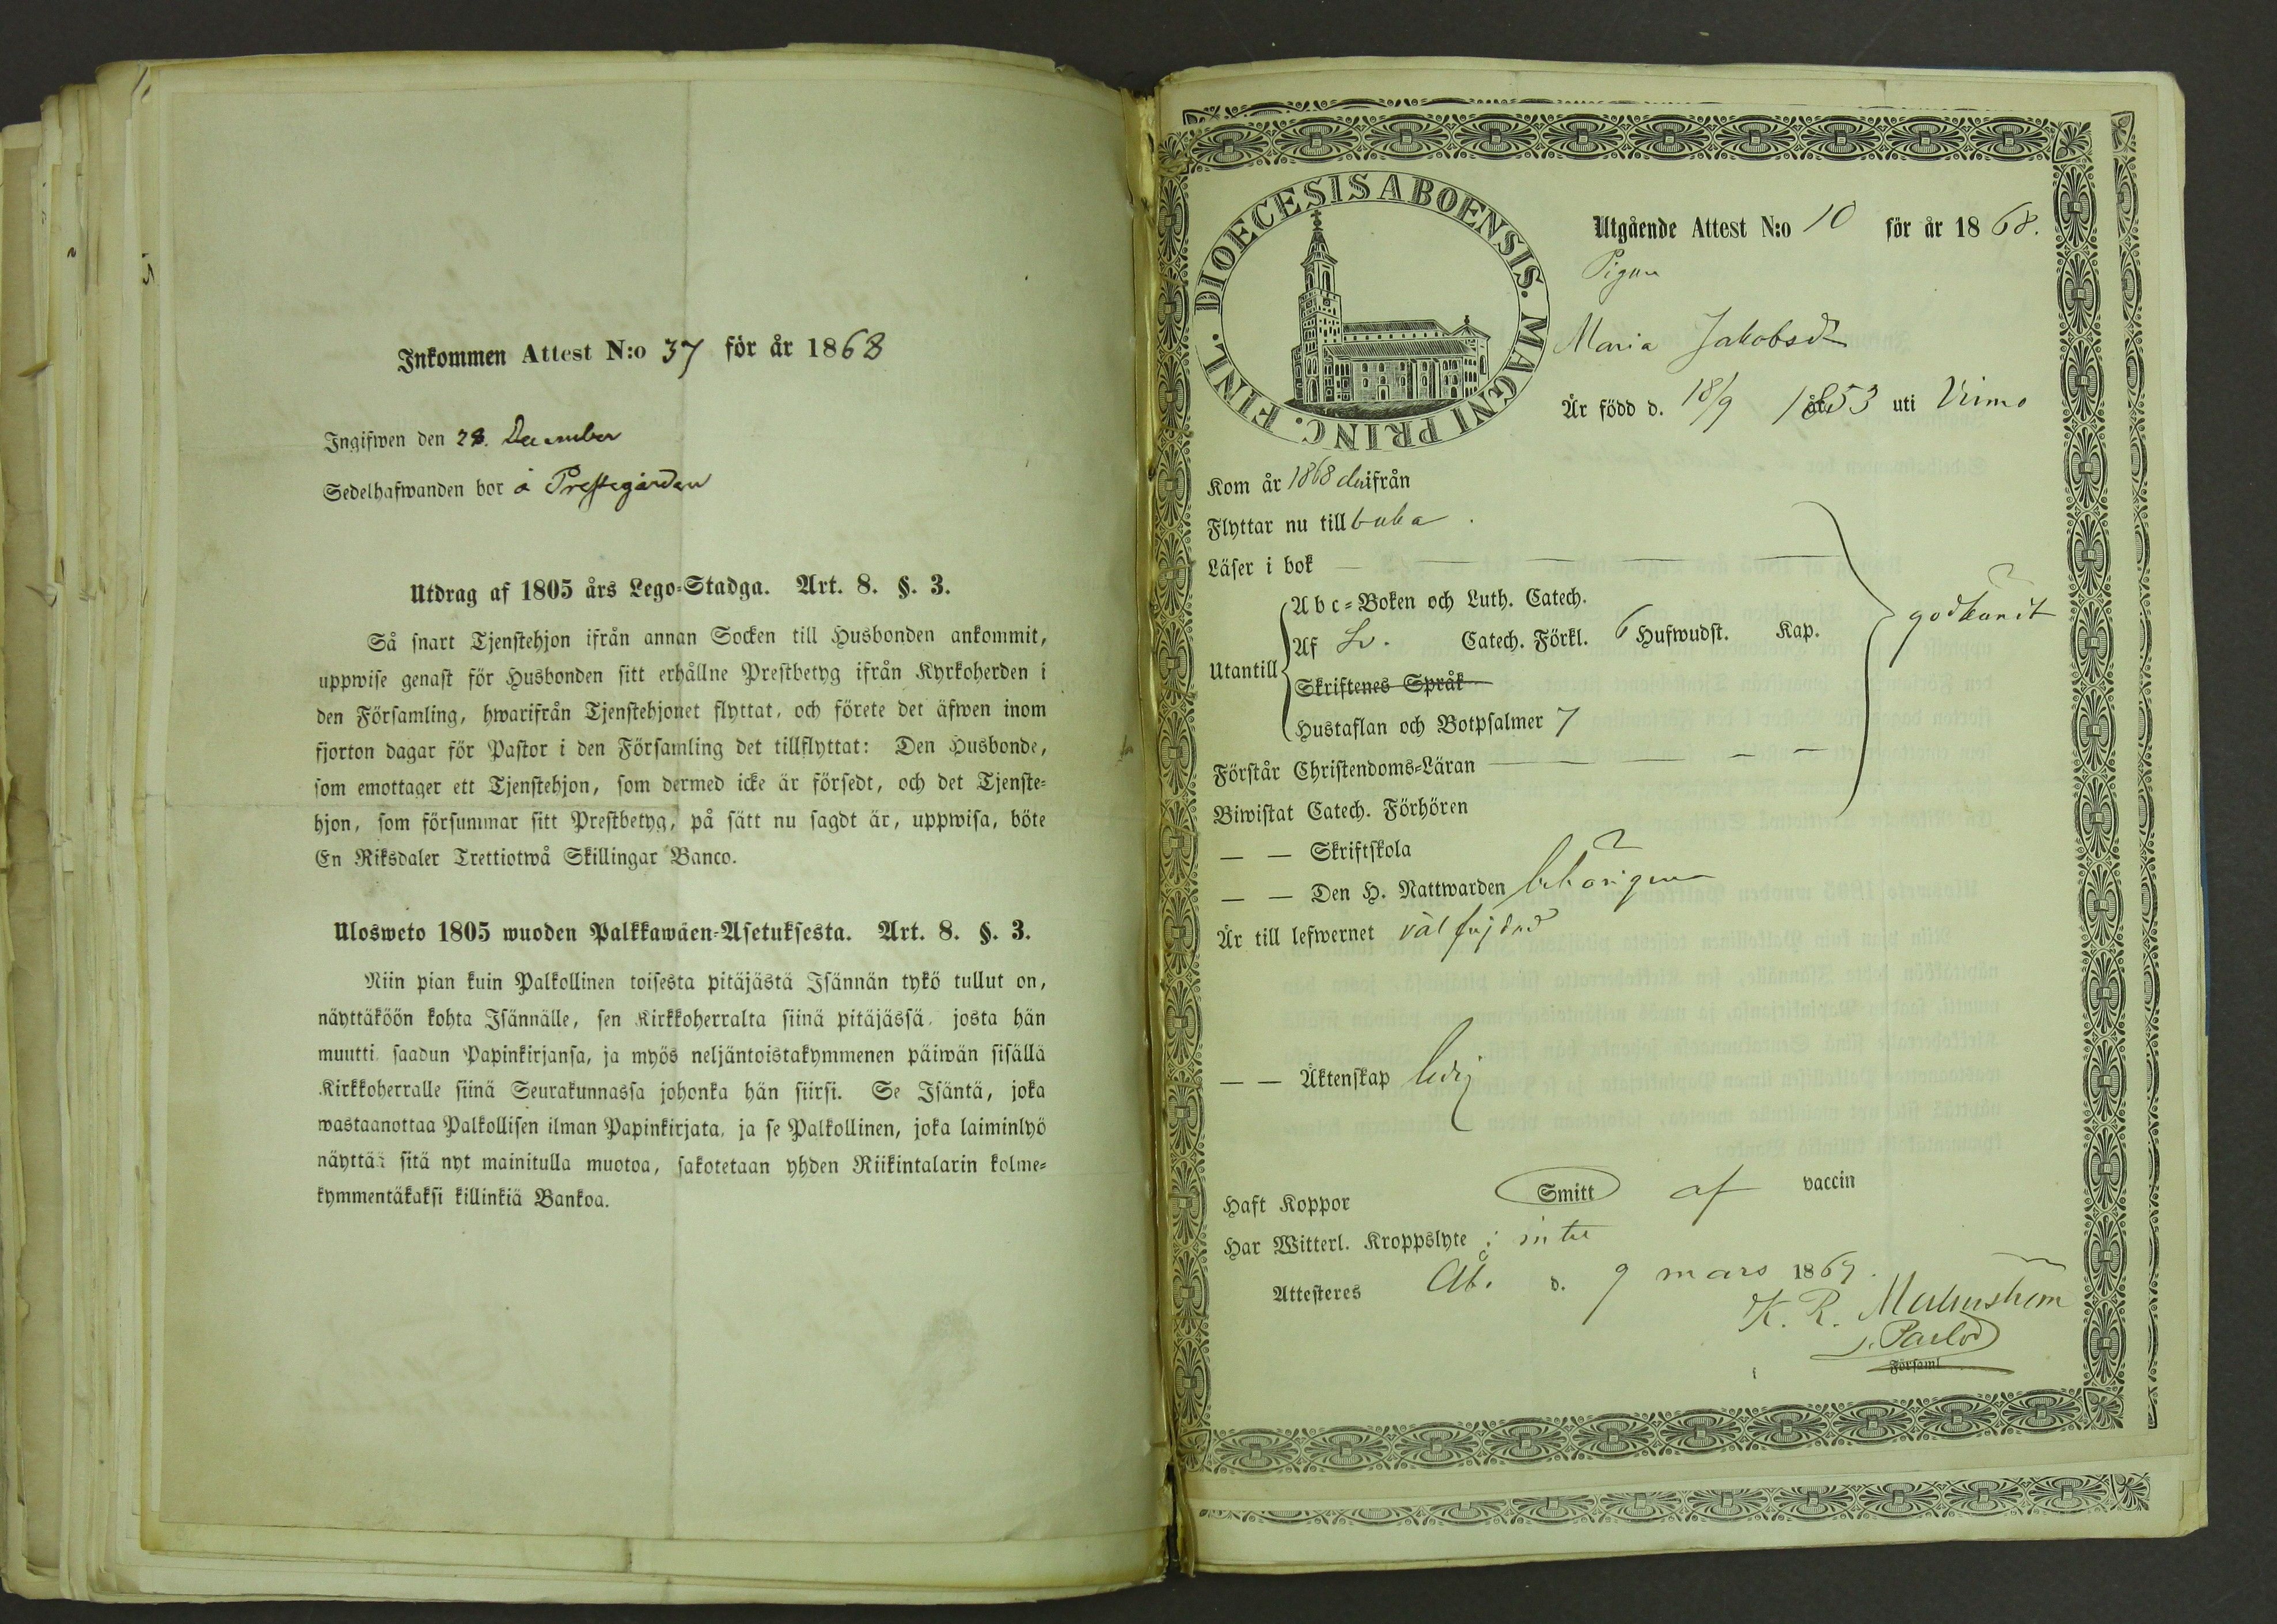 Inkommen Attest N:o 37 för år 1868
Ingifwen den 28. December
Sedelhafwanden bor å Prestegården
Utdrag af 1805 års Lego-Stadga. Art. 8. §. 3.
Så snart Tjenstehjon ifrån annan Socken till Husbonden ankommit,
uppwise genast för Husbonden sitt erhållne Prestbetyg ifrån Kyrkoherden i
den Församling, hwarifrån Tjenstehjonet flyttat, och förete det äfwen inom
fjorton dagar för Pastor i den Församling det tillflyttat: Den Husbonde,
som emottager ett Tjenstehjon, som dermed icke är försedt, och det Tjenste-
hjon, som försummar sitt Prestbetyg, på sätt nu sagdt är, uppwisa, böte
En Riksdaler Trettiotwå Skillingar Banco.
Ulosweto 1805 wuoden Palkkawäen-Asetuksesta. Art. 8. §. 3.
Niin pian kuin Palkollinen toisesta pitäjästä Isännän tykö tullut on,
näyttäköön kohta Isännälle, sen Kirkkoherralta siinä pitäjässä, josta hän
muutti, saadun Papinkirjansa, ja myös neljäntoistakymmenen päiwän sisällä
Kirkkoherralle siinä Seurakunnassa johonka hän siirsi. Se Isäntä, joka
wastaanottaa Palkollisen ilman Papinkirjata, ja se Palkollinen, joka laiminlyö
näyttää sitä nyt mainitulla muotoa, sakotetaan yhden Riikintalarin kolme-
kymmentäkaksi killinkiä Bankoa.
DIOECESIS ABOENSIS. MAGNI PRINC. FINL.
Utgående Attest N:o 10 för år 1868.
Pigan
Maria Jakobsdr
Är född d. 18/9 1853 uti Virmo
Kom år 1868 derifrån
Flyttar nu till baka.
Läser i bok
Abc-Boken och Luth. Catech.
Utantill
Af Sv. Catech. Förkl. 6 Hufwudst. Kap.
godkändt
Skriftenes Språk
Hustaflan och Botpsalmer 7
Förstår Christendoms-Läran
Biwistat Catech. Förhören
— — Skriftskola
— — Den H. Nattwarden behörigen
Är till lefwernet väl frejdad
— — Äktenskap ledig
Haft Koppor Smitt af vaccin
Har Witterl. Kroppslyte: inte
Attesteres Åbo d. 9 mars 1869.
K. R. Malmström
Församl